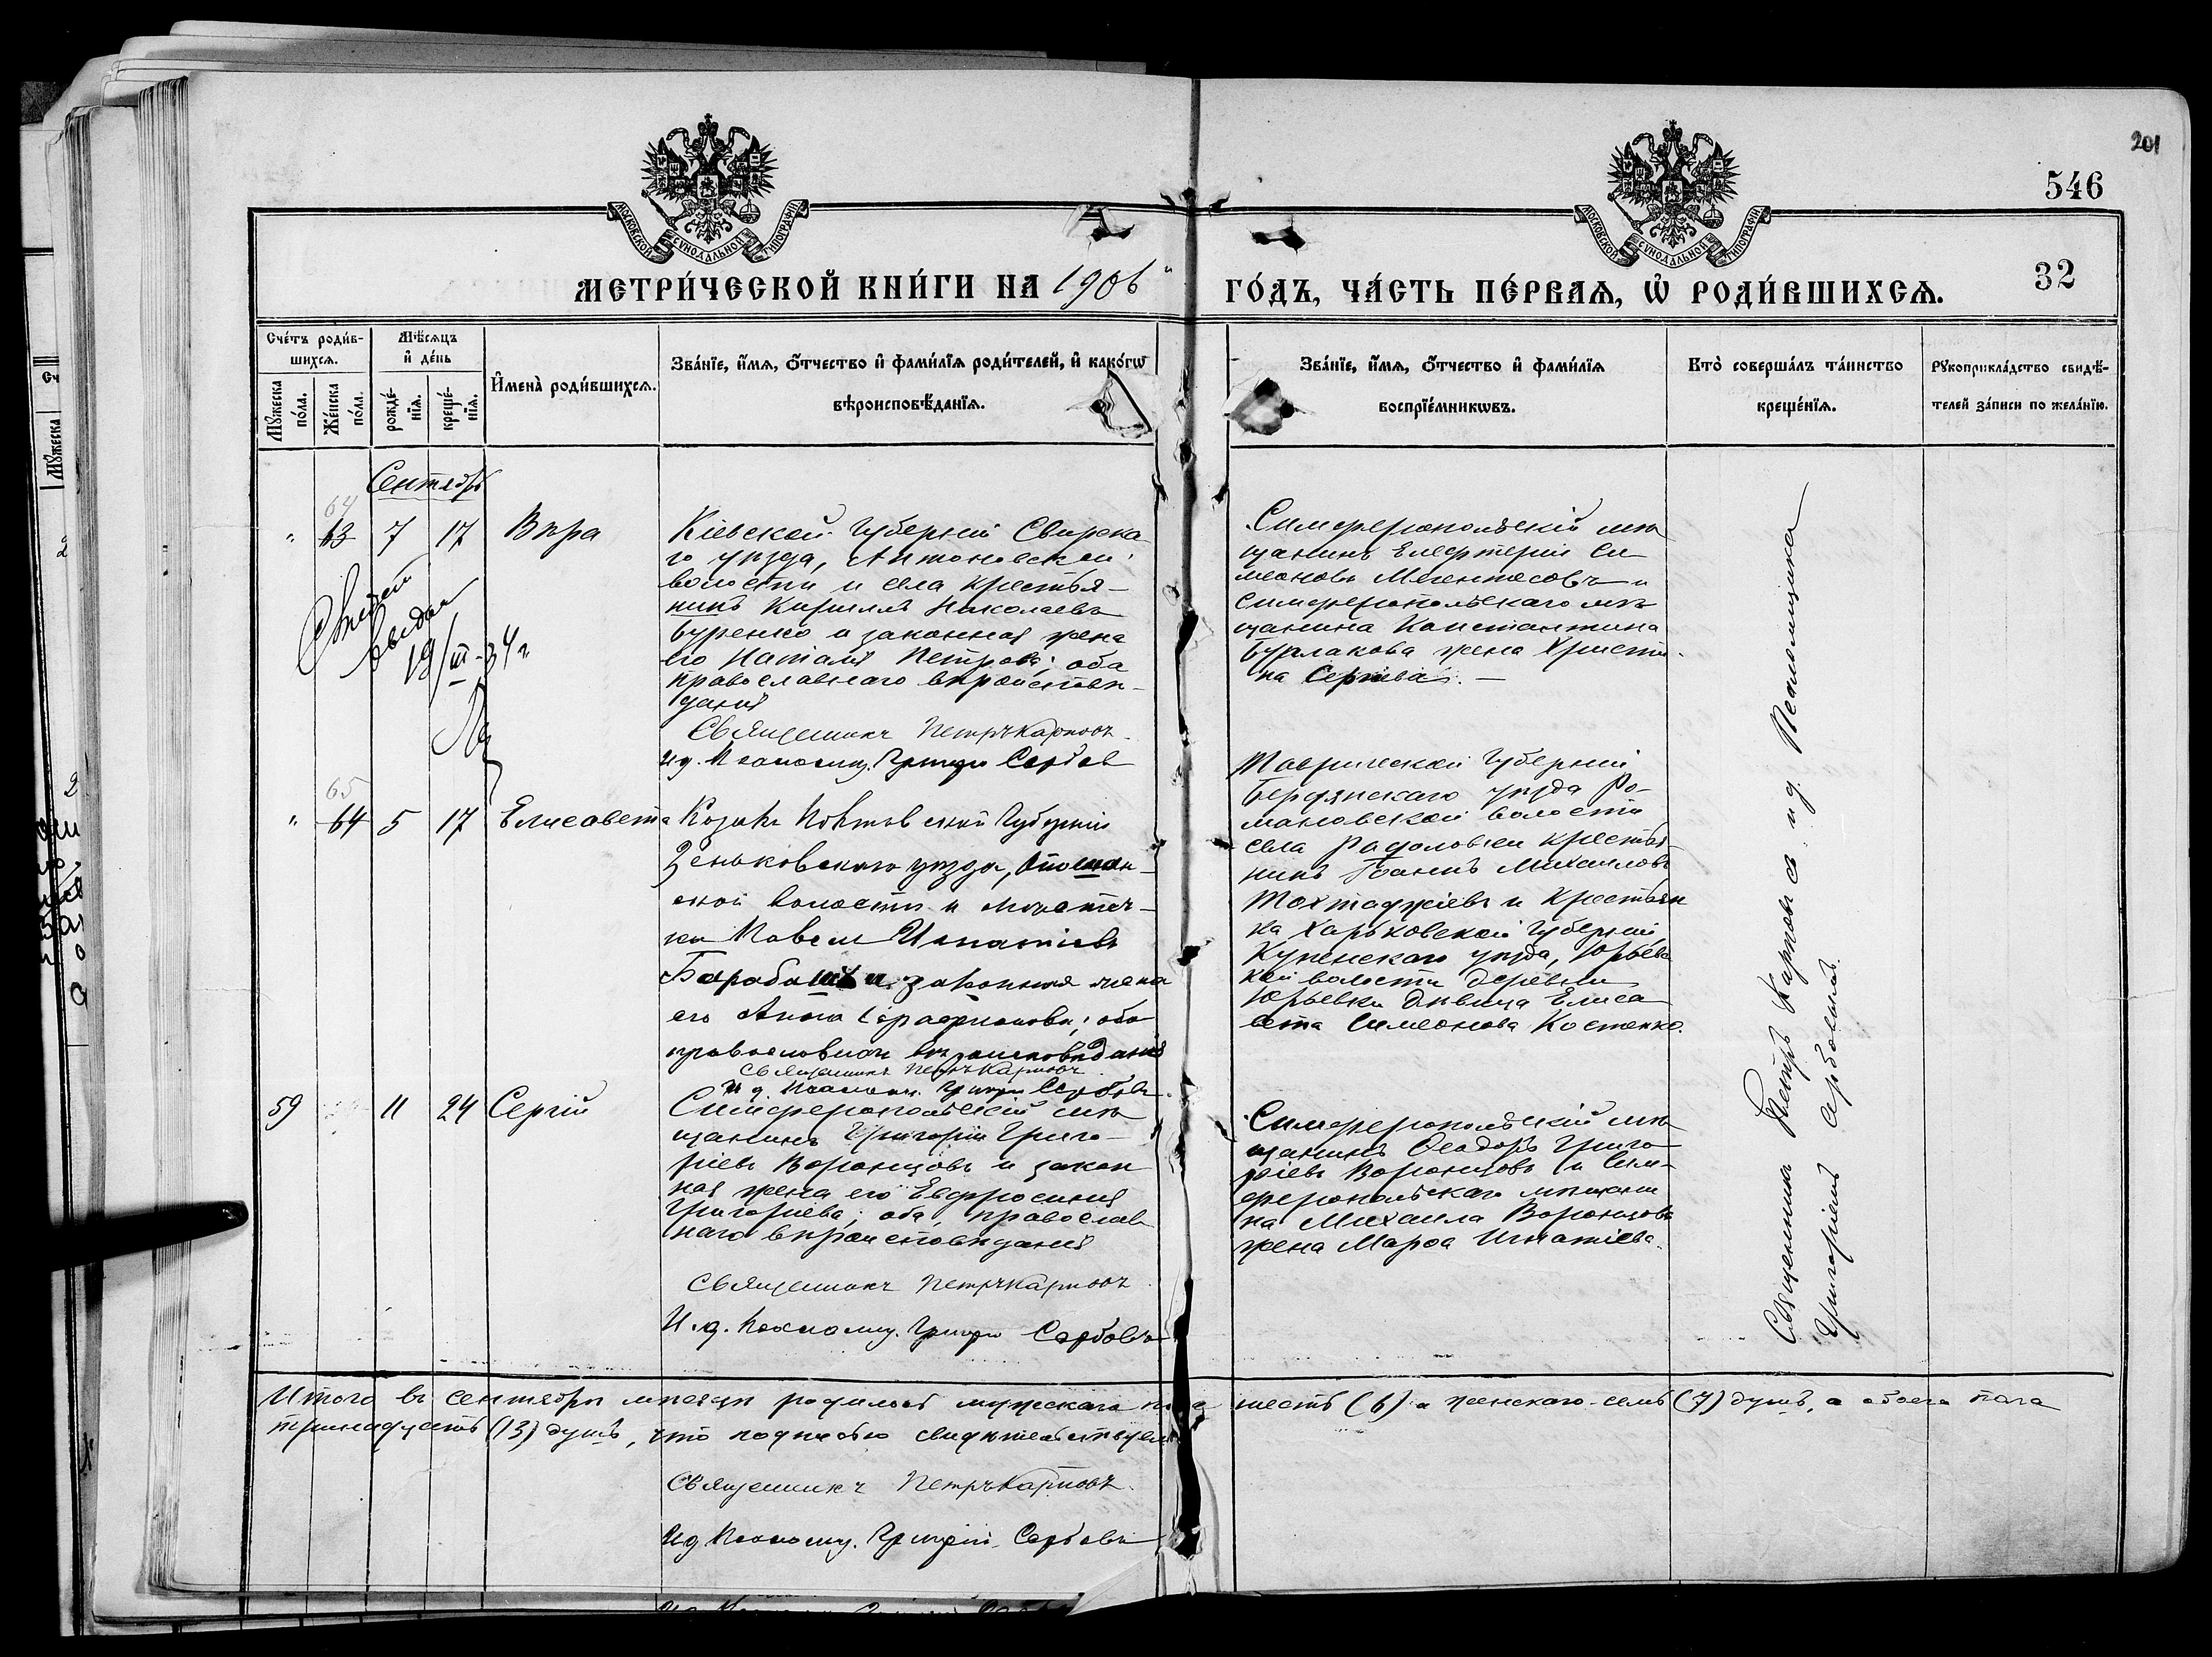 201
546
32
МОСКОВСКОЙ СѴНОДАЛЬНОЙ ТИПОГРАФІИ
МОСКОВСКОЙ СѴНОДАЛЬНОЙ ТИПОГРАФІИ
МЕТРИ́ЧЕСКОЙ КНИ́ГИ НА 1906 ГО́ДЪ, ЧА́СТЬ ПЕ́РВАѦ, Ѡ҆ РОДИ́ВШИХСѦ.
Сче́тъ роди́в-
шихсѧ.
Мѹ́жеска
по́ла.
Же́нска
по́ла.
Мѣ́сѧцъ
и҆ де́нь
рожде́-
нїѧ.
креще́-
нїѧ.
И҆мена̀ роди́вшихсѧ.
Зва́нїе, и҆́мѧ, ѻ҆́тчество и҆ фами́лїѧ роди́телей, и҆ како́гѡ
вѣроисповѣ́данїѧ.
Зва́нїе, и҆́мѧ, ѻ҆́тчество и҆ фами́лїѧ
воспрїе́мникѡвъ.
Кто̀ соверша́лъ та́инство
креще́нїѧ.
Рѹкоприкла́дство свидѣ́-
телей за́писи по жела́нїю.
Сентябрь
64
" 63 7 17 Вѣра
Кіевской Губерніи Свирска
го уѣзда, Антоновской
волости и села крестья-
нинъ Кириллъ Николаевъ
Буренко и законная жена
его Наталія Петрова; оба
православнаго вѣроисповѣ-
данія
Священникъ Петръ Карповъ
И д. Псаломщ. Григорій Сербов
выдан
19/III-34 г.
Симферопольскій мѣ
щанинъ Елефтерій Си
меоновъ и
симферопольскаго мѣ
щанина Константина
Бурлакова жена Христи-
на Сергіева. —
65
" 64 5 17 Елисавета
Козакъ Полтавской Губерніи
Зеньковскаго уѣзда, Опошнян-
ской волости и мѣстеч-
ка Павелъ Игнатіевъ
Барабашъ и законная жена
его Анна Серафіонова; оба
православнаго вѣроисповѣданія
Священникъ Петръ Карповъ
И д. Псаломщ. Григорій Сербовъ
Таврической Губерніи
Бердянскаго уѣзда Ро-
мановской волости
села Радоловки крестья-
нинъ Іоаннъ Михаиловъ
Тохтаджіевъ и крестьян
ка Харьковской Губерніи,
Купенскаго уѣзда, Юрьевс
кой волости деревни
Юрьевки дѣвица Елиса
вета Симеонова Костенко.
59 11 24 Сергій
Симферопольскій мѣ
щанинъ Григорій Григо-
ріевъ Воронцовъ и закон
ная жена его Евфросинія
Григоріева; оба православ
наго вѣроисповѣданія
Священникъ Петръ Карповъ
И. д. Псаломщ. Григорій Сербовъ
Симферопольскій мѣ
щанинъ Ѳеодоръ Григо
ріевъ Воронцовъ и Сим-
феропольскаго мѣщани
на Михаила Воронцова
жена Марѳа Игнатіева.
Священникъ Петръ Карповъ и. д. Псаломщика
Григорій Сербовъ.
Итого въ сентябрѣ мѣсяцѣ родилось мужескаго пола шесть (6) и женскаго семь (7) душъ, а обоего пола
тринадцать (13) душъ, что подписью свидѣтельствуемъ
Священникъ Петръ Карповъ.
И д Псаломщ. Григорій Сербовъ